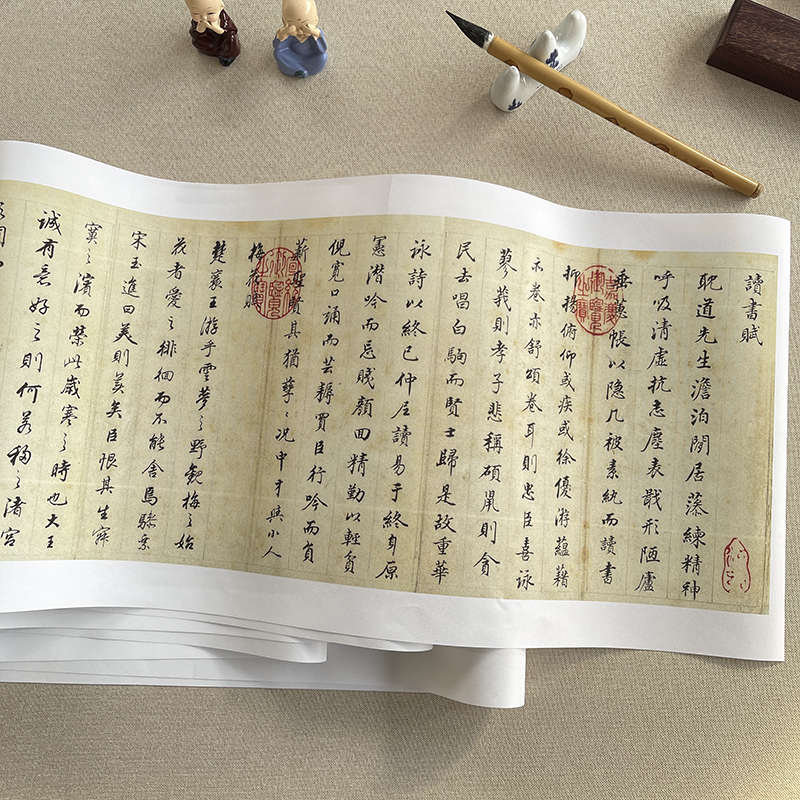 讀書賦
耽道先生澹泊閒居藻練精神
呼吸清虛抗志塵表戢形陋廬
垂蕙帳以隐几被素紈而讀書
抑揚俯仰或疾或徐優游蘊藉
亦卷亦舒頌卷耳則忠臣喜詠
蓼莪則孝子悲稱碩鼠則貪
民去唱白駒而賢士歸是故重華
詠詩以終已仲尼讀易于終身原
憲潛吟而忘賤顏回精勤以輕貧
倪寬口誦而芸耨買臣行吟而負
薪聖賢其猶孳〻況中才與小人
梅花賦
楚襄王游乎雲夢之野觀梅之始
花者愛之徘徊而不能舍焉驂乘
宋玉進曰美則美矣臣恨其生寂
寞之濱而榮此歲寒之時也大王
誠有意好之則何若移之渚宮